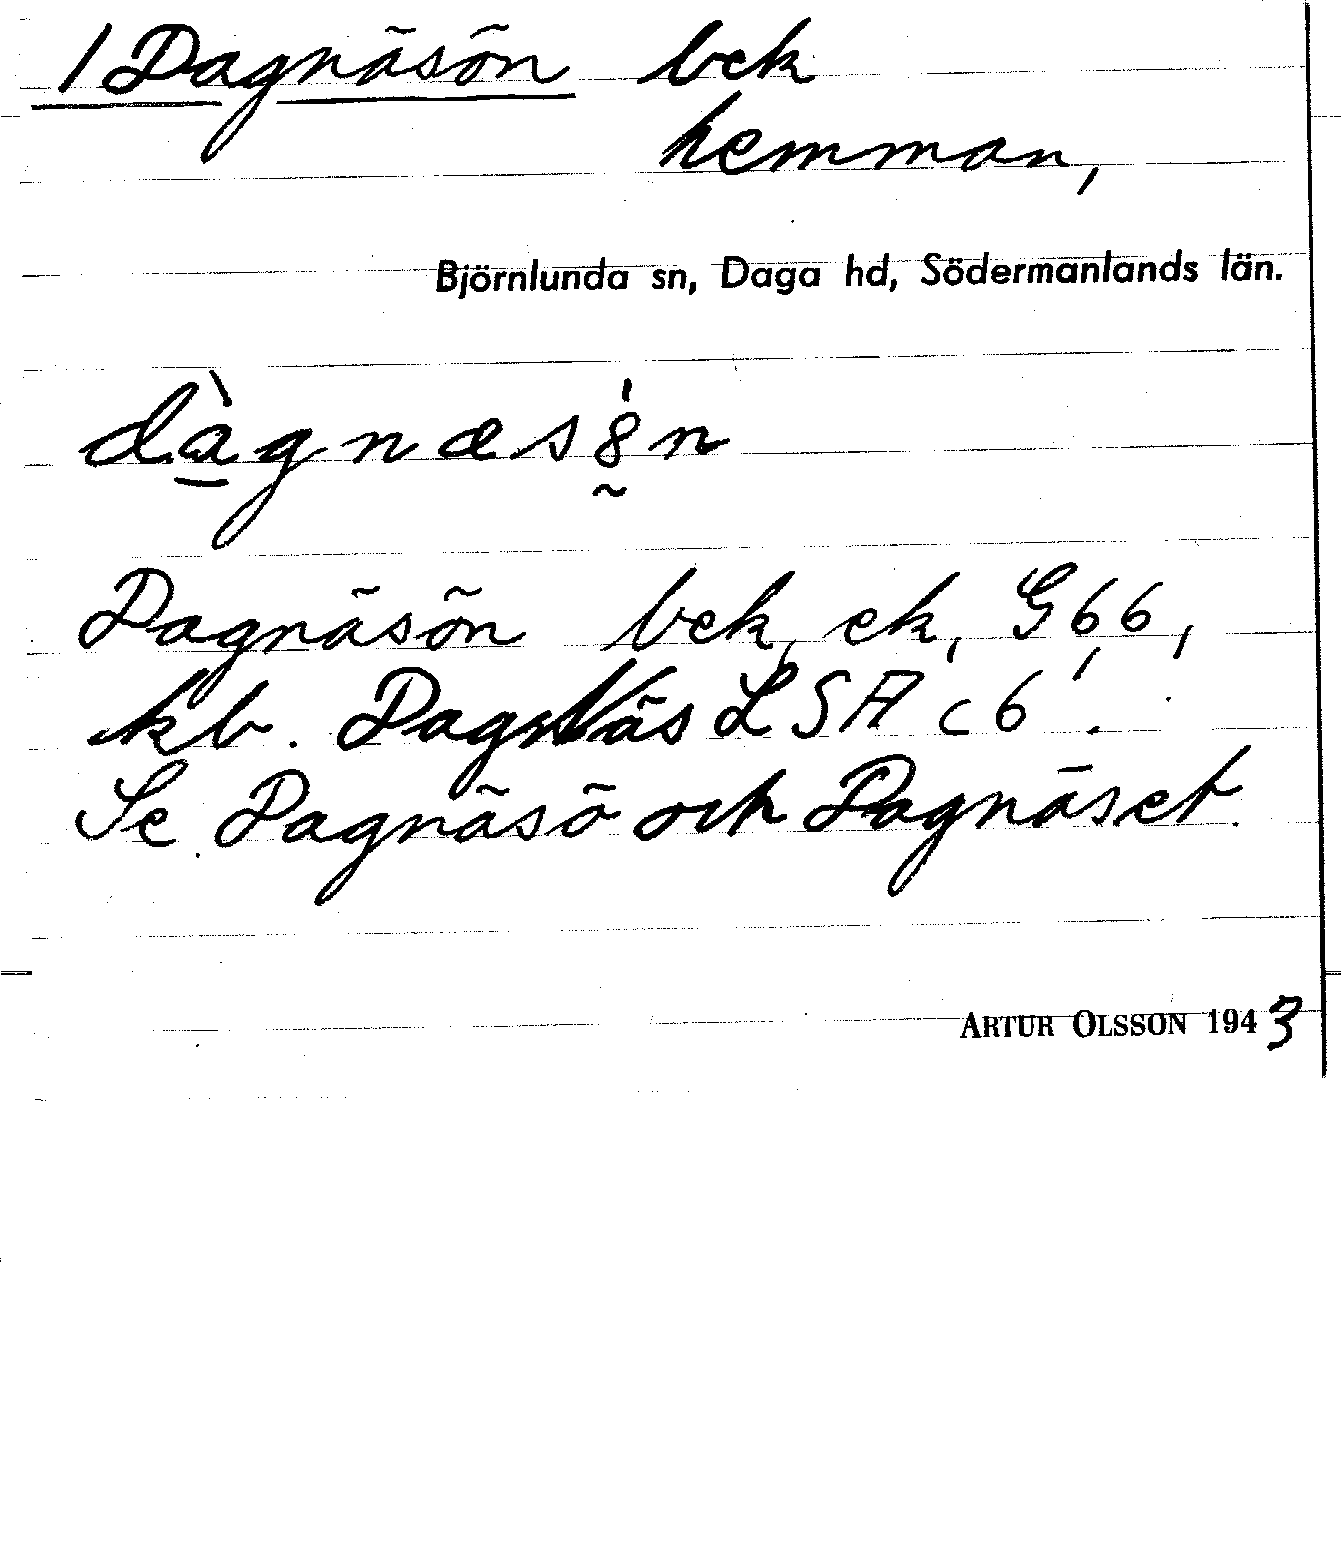 1 Dagnäsön bek
hemman,
Björnlunda sn, Daga hd, Södermanlands län.
dàgnæs8n
Dagnäsön bek, ek, G 6, 6,
kb. Dagnäs LSA c6.
Se Dagnäsö och Dagnäset.
ARTUR OLSSON 1943